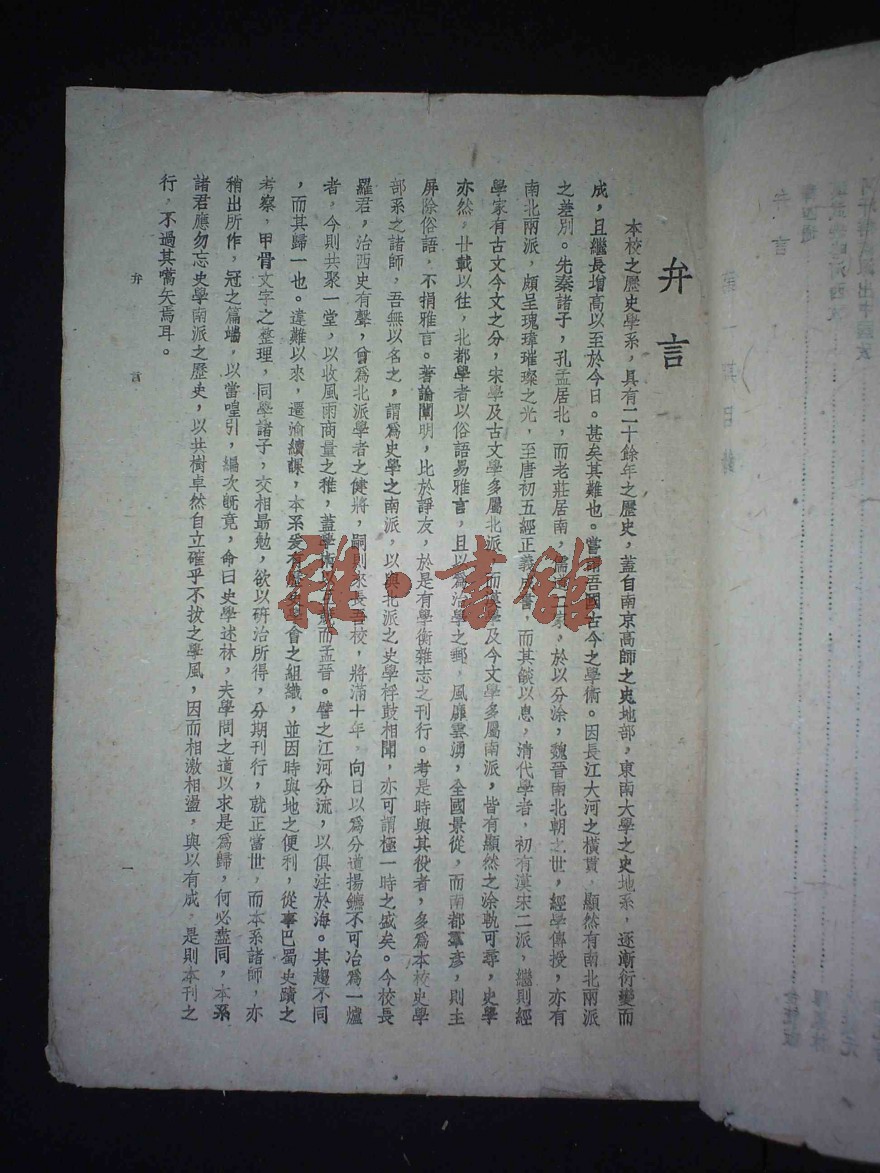 弁言
本校之歷史學系，具有二十餘年之歷史，蓋自南京高師之史地部，東南大學之史地系，逐漸衍變而
成，且繼長增高以至於今日。甚矣其難也。嘗謂吾國古今之學術。因長江大河之橫貫，顯然有南北兩派
之差別。先秦諸子，孔孟居北，而老莊居南，儒道二家，於以分涂，魏晉南北朝之世，經學傳授，亦有
南北兩派，頗呈瑰瑋璀璨之光，至唐初五經正義成書，而其燄以息，清代學者，初有漢宋二派，繼則經
學家有古文今文之分，宋學及古文學多屬北派，而漢學及今文學多屬南派，皆有顯然之涂軌可尋，史學
亦然，廿載以往，北都學者以俗語易雅言，且以為治學之郵，風靡雲湧，全國景從，而南都羣彥，則主
屏除俗語，不捐雅言。著論闡明，比於諍友，於是有學衡雜志之刊行。考是時與其役者，多爲本校史學
部系之諸師，吾無以名之，謂爲史學之南派，以與北派之史學桴鼓相聞，亦可謂極一時之盛矣。今校長
羅君，治西史有聲，曾爲北派學者之健將，嗣則來長吾校，將滿十年，向日以爲分道揚鑣不可冶爲一爐
者，今則共聚一堂，以收風雨商量之雅，蓋學術以互競而孟晉。譬之江河分流，以俱注於海。其趨不同
，而其歸一也。違難以來，遷渝續課，本系爰有歷史學會之組織，並因時與地之便利，從事巴蜀史蹟之
考察，甲骨文字之整理，同學諸子，交相勗勉，欲以硏治所得，分期刊行，就正當世，而本系諸師，亦
稍出所作，冠之篇端，以當喤引，編次旣竟，命曰史學述林，夫學問之道以求是爲歸，何必盡同，本系
諸君應勿忘史學南派之歷史，以共樹卓然自立確乎不拔之學風，因而相激相盪，與以有成，是則本刊之
行，不過其嚆矢焉耳。
弁言
一
雜·書館
弁言